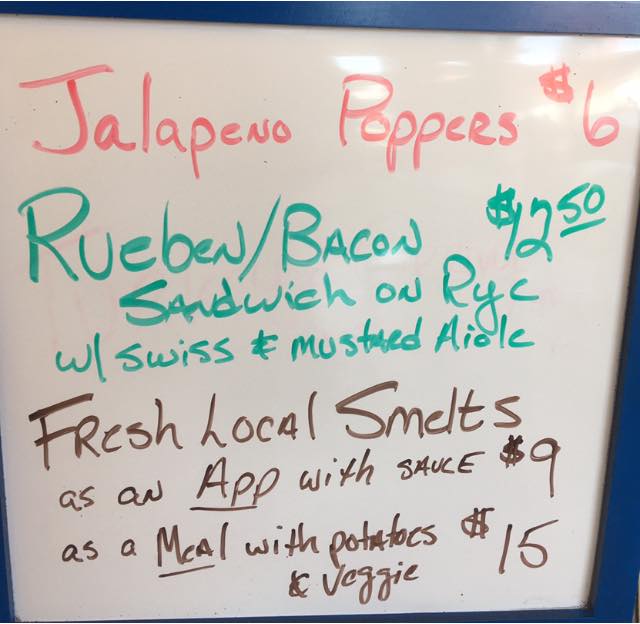 Jalapeno Poppers $6
Rueben/Bacon $12.50
Sandwich on Rye
w/ Swiss & Mustard Aiole
Fresh Local Smelts
as an App with sauce $9
as a Meal with potatoes $15
& Veggie